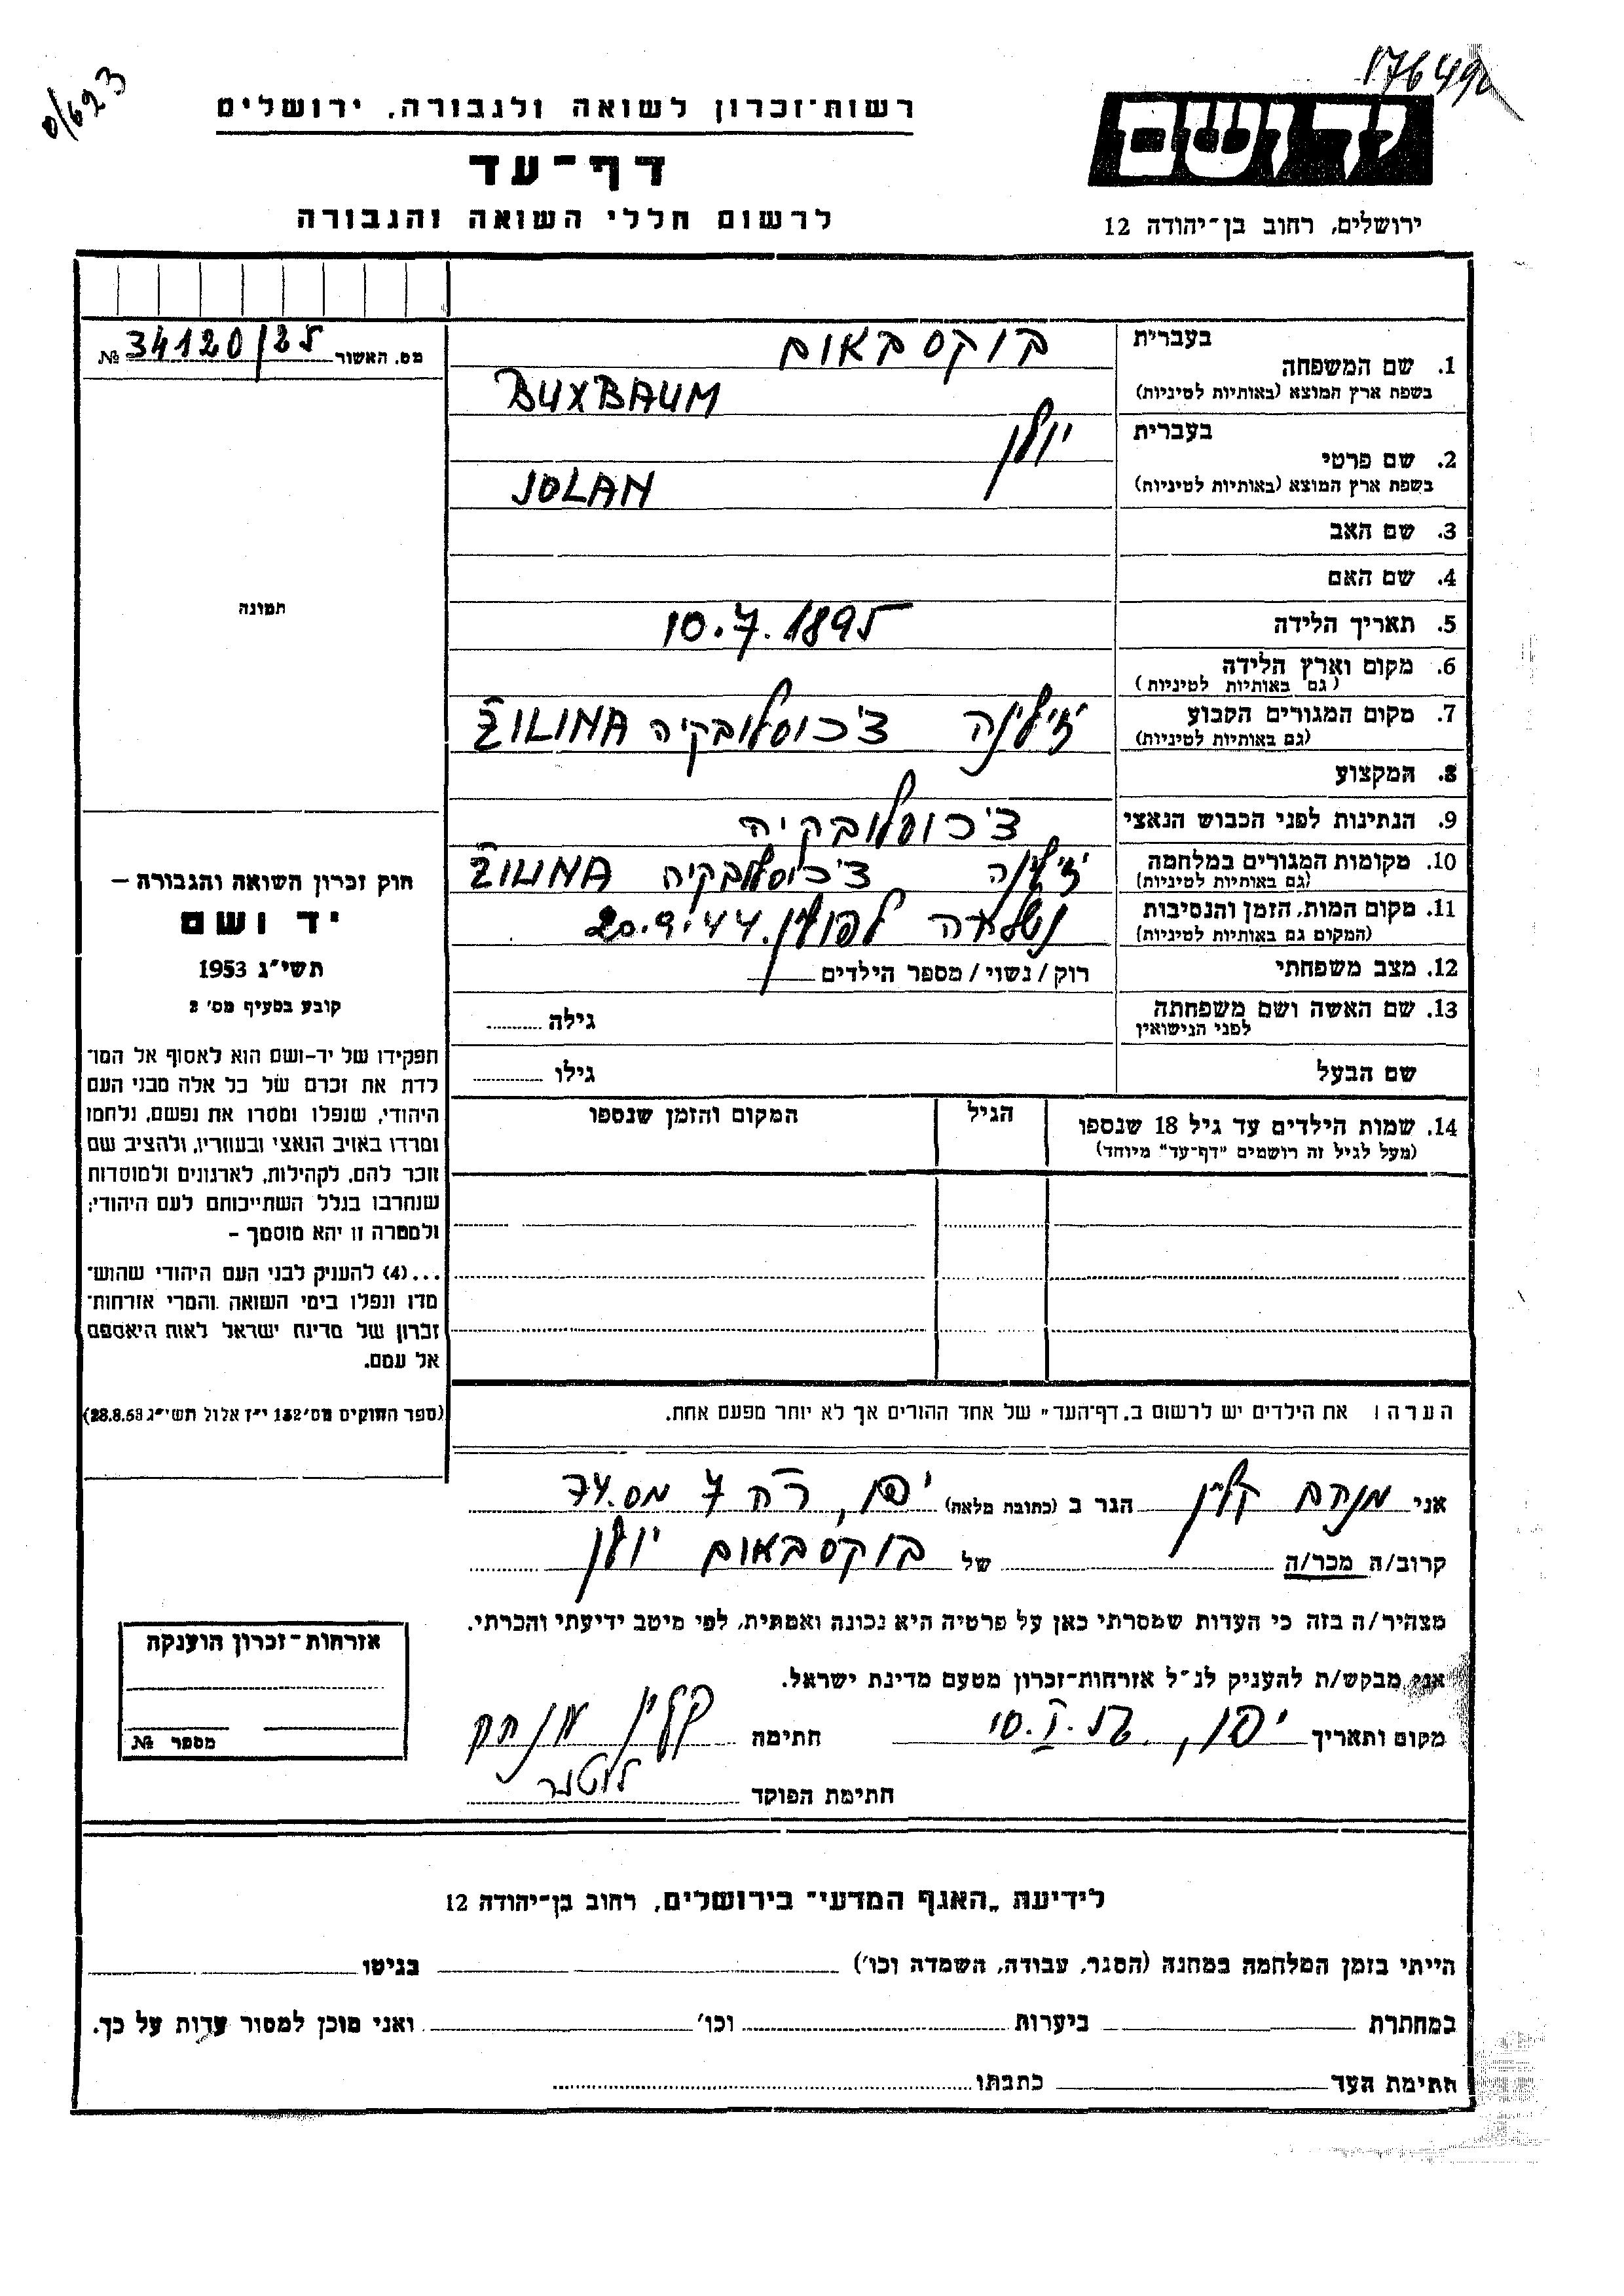 0/623
176490
יד ושם
ירושלים, רחוב בן־יהודה 12
רשות־זכרון לשואה ולגבורה, ירושלים
דף־עד
לרשום חללי השואה והגבורה
מס. האשור 34120/25 №
תמונה
בעברית
1. שם המשפחה בוקסבאום
בשפת ארץ המוצא (באותיות לטיניות) BUXBAUM
בעברית
2. שם פרטי יולן
בשפת ארץ המוצא (באותיות לטיניות) JOLAN
3. שם האב
4. שם האם
5. תאריך הלידה 10.7.1895
6. מקום וארץ הלידה
(גם באותיות לטיניות)
7. מקום המגורים הקבוע ז'ילינה צ'כוסלובקיה ŽILINA
(גם באותיות לטיניות)
8. המקצוע
9. הנתינות לפני הכבוש הנאצי צ'כוסלובקיה
10. מקומות המגורים במלחמה ז'ילינה צ'כוסלובקיה ŽILINA
(גם באותיות לטיניות)
11. מקום המות, הזמן והנסיבות נשלחה לפולין 20.9.44
(המקום גם באותיות לטיניות)
12. מצב משפחתי רוק / נשוי / מספר הילדים
13. שם האשה ושם משפחתה גילה
לפני הנישואין
שם הבעל גילו
14. שמות הילדים עד גיל 18 שנספו הגיל המקום והזמן שנספו
(מעל לגיל זה רושמים "דף־עד" מיוחד)
חוק זכרון השואה והגבורה –
יד ושם
תשי"ג 1953
קובע בסעיף מס' 2
תפקידו של יד-ושם הוא לאסוף אל המו־
לדת את זכרם של כל אלה מבני העם
היהודי, שנפלו ומסרו את נפשם, נלחמו
ומרדו באויב הנאצי ובעוזריו, ולהציב שם
וזכר להם, לקהילות, לארגונים ולמוסדות
שנחרבו בגלל השתייכותם לעם היהודי;
ולמטרה זו יהא מוסמך –
...(4) להעניק לבני העם היהודי שהוש־
מדו ונפלו בימי השואה והמרי אזרחות־
זכרון של מדינת ישראל לאות היאספם
אל עמם.
(ספר החוקים מס' 132 י"ז אלול תשי"ג 28.8.53)
הערה: את הילדים יש לרשום ב„דף־העד" של אחד ההורים אך לא יותר מפעם אחת.
אני מנחם קליין הגר ב (כתובת מלאה) יפו, רח 7 מס. 74
קרוב/ה מכר/ה של בוקסבאום יולן
מצהיר/ה בזה כי העדות שמסרתי כאן על פרטיה היא נכונה ואמתית, לפי מיטב ידיעתי והכרתי.
אני מבקש/ת להעניק לנ"ל אזרחות־זכרון מטעם מדינת ישראל.
מקום ותאריך יפו, 10.I. חתימה קליין מנחם
חתימת הפוקד
אזרחות־זכרון הוענקה
מספר №
לידיעת „האגף המדעי" בירושלים, רחוב בן־יהודה 12
הייתי בזמן המלחמה במחנה (הסגר, עבודה, השמדה וכו') בגיטו
במחתרת ביערות וכו' ואני מוכן למסור עדות על כך.
חתימת העד כתבתו